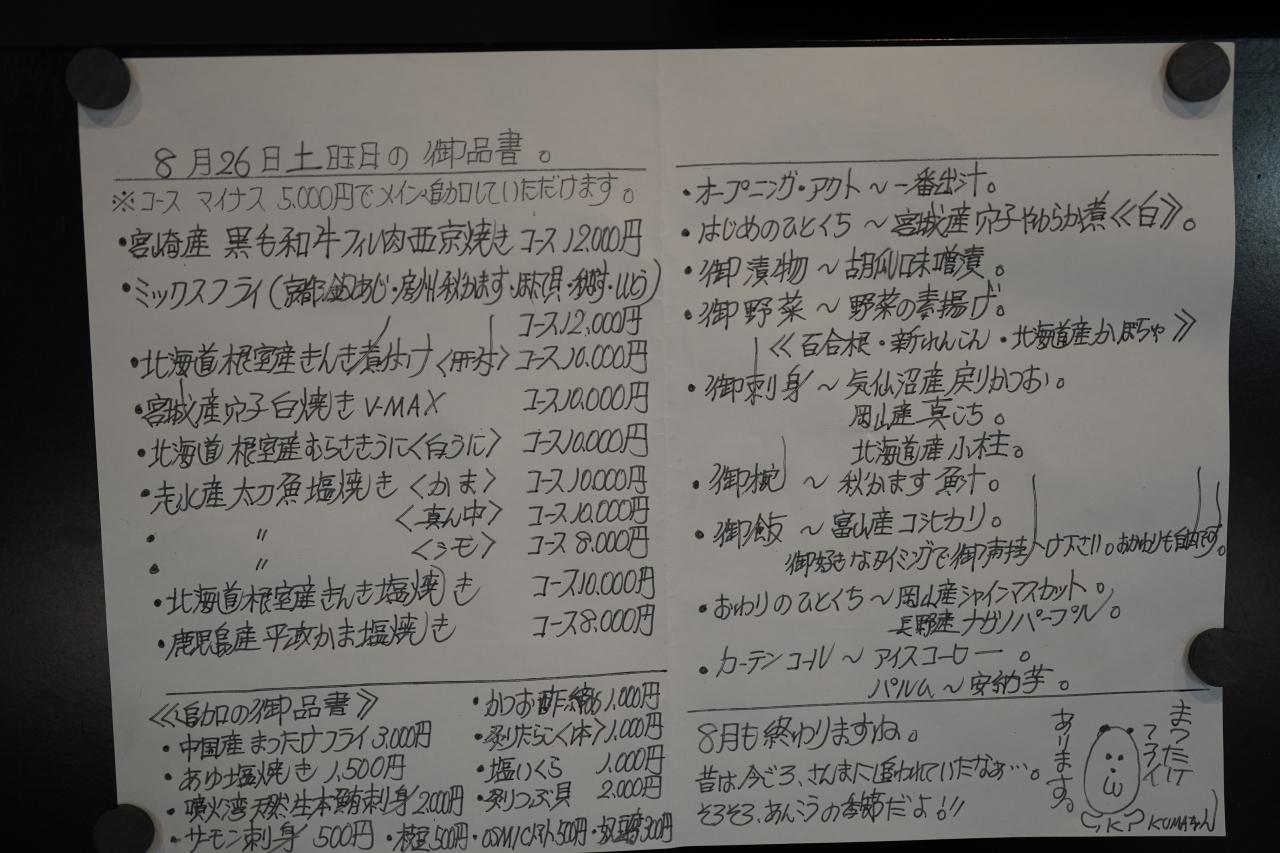 8月26日土旺日の御品書。
※コース マイナス 5.000円でメイン追加していただけます。
・宮崎産 黒毛和牛フィレ肉西京焼き コース12.000円
・ミックスフライ(京都 あじ・房州秋かます・ほたて貝・
コース12,000円
・北海道根室産きんき煮付け コース10.000円
・宮城産穴子白焼き V-MAX コース10.000円
・北海道根室産むらさきうに<白うに> コース10.000円
・志水産太刀魚塩焼き <かま> コース10.000円
・ 〃 <真ん中> コース10.000円
・ 〃 <シモ> コース8.000円
・北海道根室産きんき塩焼き コース10.000円
・鹿児島産平政かま塩焼き コース8.000円
≪追加の御品書≫
・中国産まったけフライ3.000円
・あゆ塩焼き 1,500円
・噴火湾天然生本鮪刺身2.000円
・サーモン刺身 500円 ・枝豆500円・OSMICトマト500円・奴豆腐300円
・かつお酢〆 1,000円
・炙りたらこ<一本>1,000円
・塩いくら 1,000円
・炙りつぶ貝 2.000円
・オープニング・アクト～一番出汁。
・はじめのひとくち～宮城産穴子やわらか煮≪白≫。
・御漬物～胡瓜味噌漬。
・御野菜～野菜の素揚げ。
≪百合根・新れんこん・北海道産かぼちゃ≫
・御刺身～気仙沼産戻りかつお。
岡山産真こち。
北海道産小柱。
・御椀～秋かます魚汁。
・御飯～富山産コシヒカリ。
御好きなタイミングで御声掛け下さい。おかわりも自由です。
・おわりのひとくち～岡山産シャインマスカット。
長野産ナガノパープル。
・カーテンコール～アイスコーヒー。
パルム～安納芋。
8月も終わりますね。
昔は今ごろ、さんまに追われていたなぁ…。
そろそろ、あんこうの季節だよ!!
まつたけ
フライ
あります。
KUMAちゃん